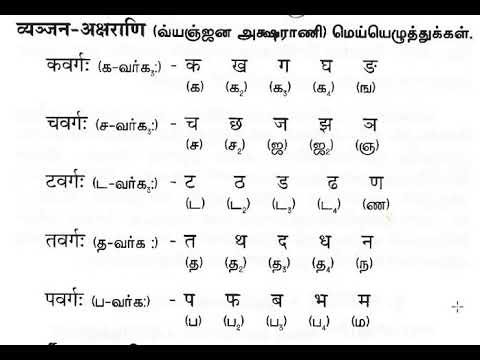 व्यञ्जन-अक्षराणि (வ்யஞ்ஜன அக்ஷராணி) மெய்யெழுத்துக்கள்.
कवर्गः (க-வர்க₃:) - क ख ग घ ङ
(க) (க₂) (க₃) (க₄) (ங)
चवर्गः (ச-வர்க₃:) - च छ ज झ ञ
(ச) (ச₂) (ஜ) (ஜ₂) (ஞ)
टवर्गः (ட-வர்க₃:) - ट ठ ड ढ ण
(ட) (ட₂) (ட₃) (ட₄) (ண)
तवर्गः (த-வர்க :) - त थ द ध न
(த) (த₂) (த₃) (த₄) (ந)
पवर्गः (ப-வர்க:) - प फ ब भ म
(ப) (ப₂) (ப₃) (ப₄) (ம)